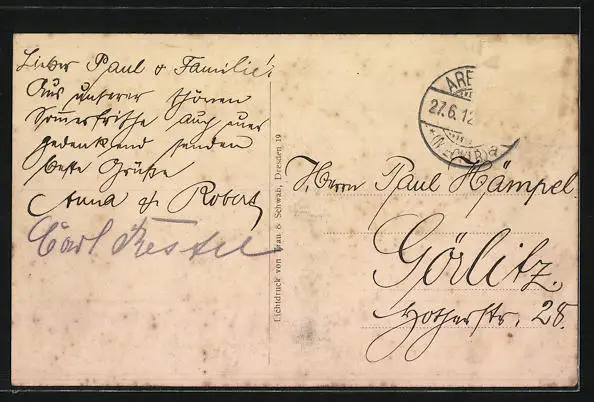 Lieber Paul & Familie!
Aus unserer schönen
Sommerfrische auch euer
gedenkend senden
beste Grüße
Anna & Robert
Carl
Lichtdruck von Brau & Schwab, Dresden 19
ARE
27.6.12
Herrn Paul Hämpel
Görlitz.
Hotherstr. 28.